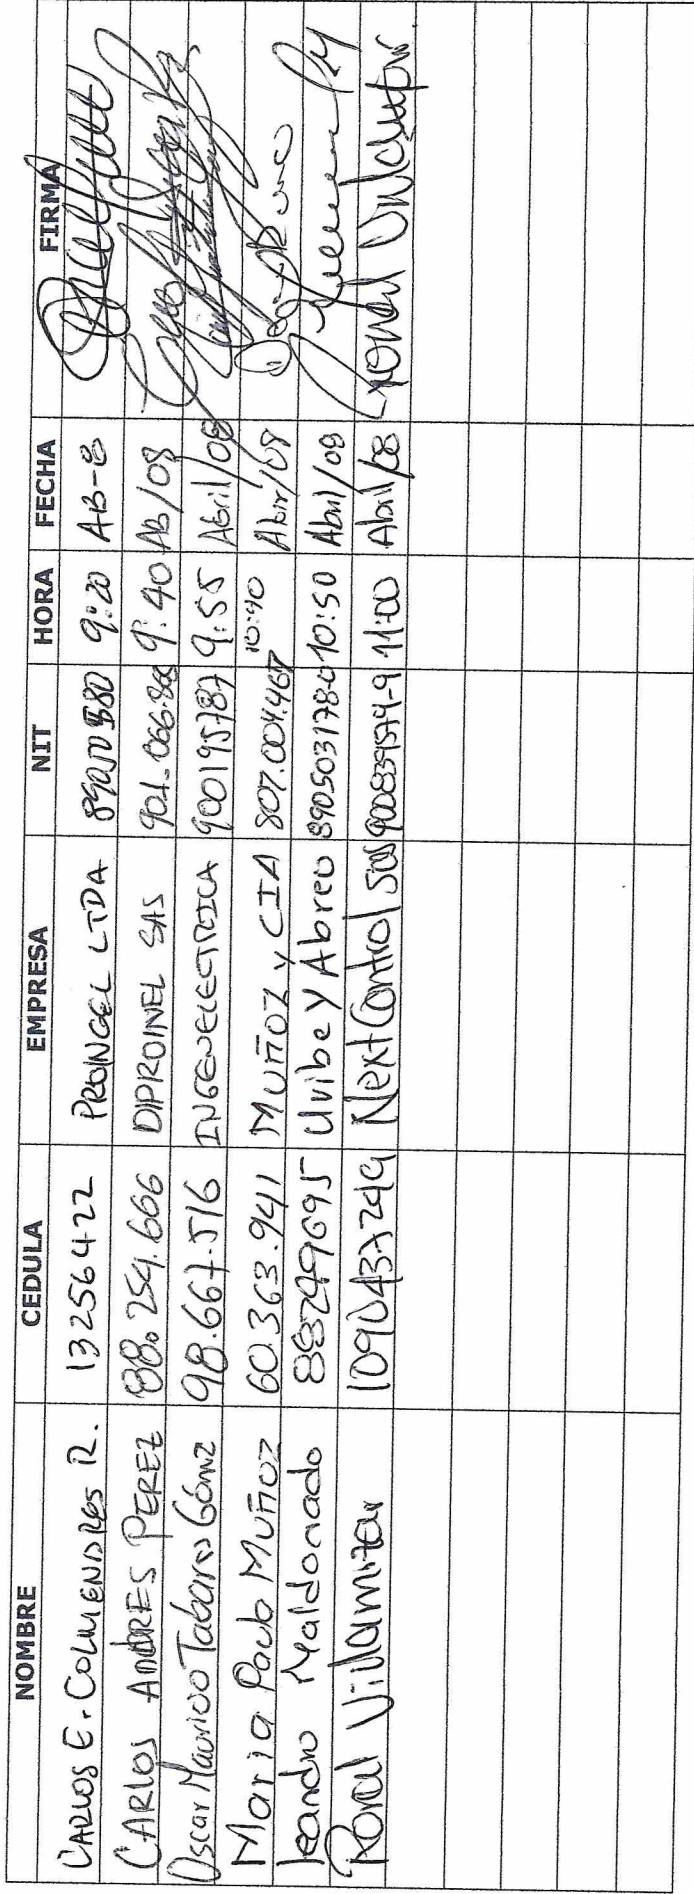 NOMBRE CEDULA EMPRESA NIT HORA FECHA FIRMA
CARLOS E. COLMENARES R. 13256422 PROINGEL LTDA 9:20 AB-8
CARLOS ANDRES PEREZ 88.254.666 DIPROINEL SAS 9:40 AB/08
Oscar Mauricio Tabares Gómez 98.667.516 INGENELECTRICA 900195787 9:55 Abril/08
Maria Paula MUÑOZ 60.363.941 MUÑOZ y CIA 807.004.467 10:40 Abir/08
leandro Maldonado 88249695 Uribe Y Abreo 890503178-0 10:50 Abril/08
Ronal Villamizar 1090437249 Next Control SAS 900839579-9 11:00 Abril/08 Ronal Villamizar